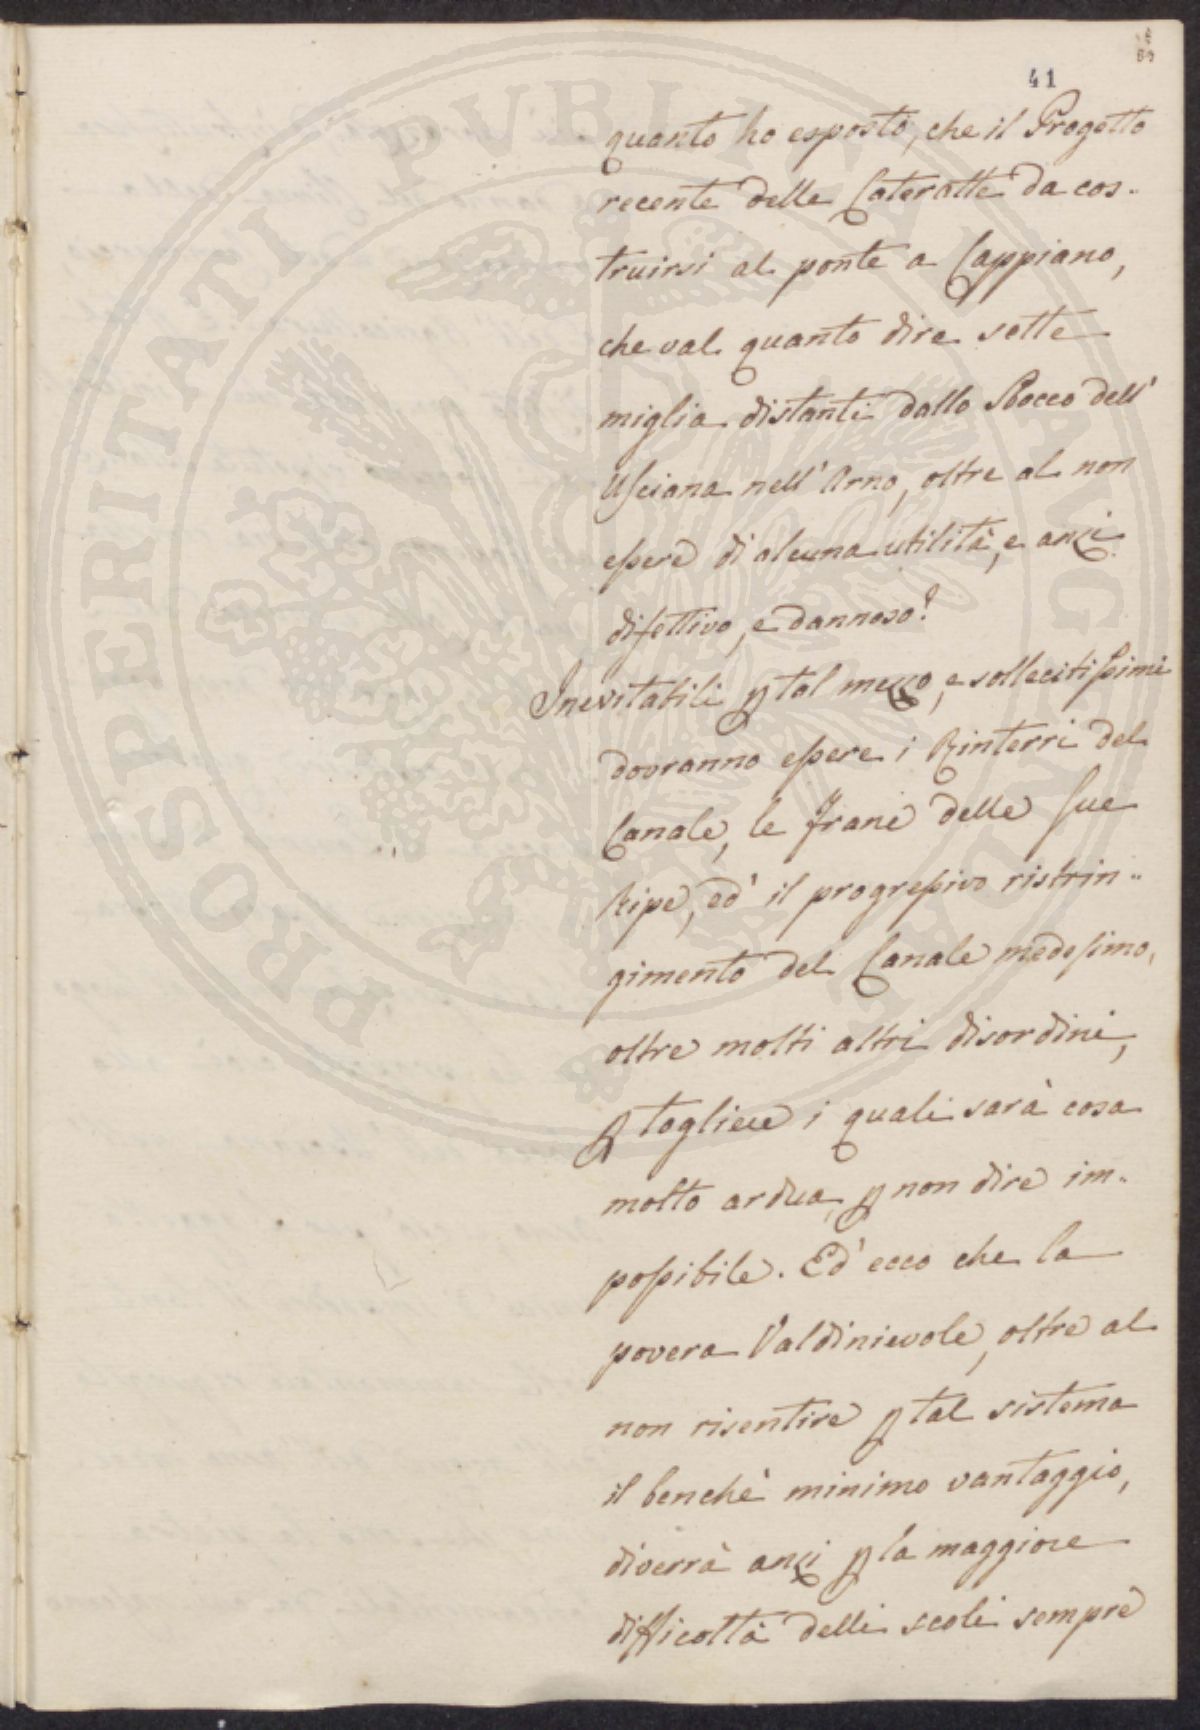 41
quanto ho esposto, che il Progetto
recente delle Cateratte da cos-
truirsi al ponte a Cappiano,
che val quanto dire sette
miglia distanti dallo Sbocco dell'
Usciana nell'Arno, oltre al non
essere di alcuna utilità, e anzi
difettivo, e dannoso?
Inevitabili p tal mezzo, e sollecitissimi
dovranno essere i Rinterri del
Canale, le frane delle sue
Ripe, ed' il progressivo ristrin-
gimento del Canale medesimo,
oltre molti altri disordini,
p togliere i quali sarà cosa
molto ardua, p non dire im-
possibile. Ed' ecco che la
povera Valdinievole, oltre al
non risentire p tal sistema
il benchè minimo vantaggio,
diverrà anzi p la maggiore
difficoltà delli scoli sempre
PROSPERITATI PVBLICAE AVGENDAE